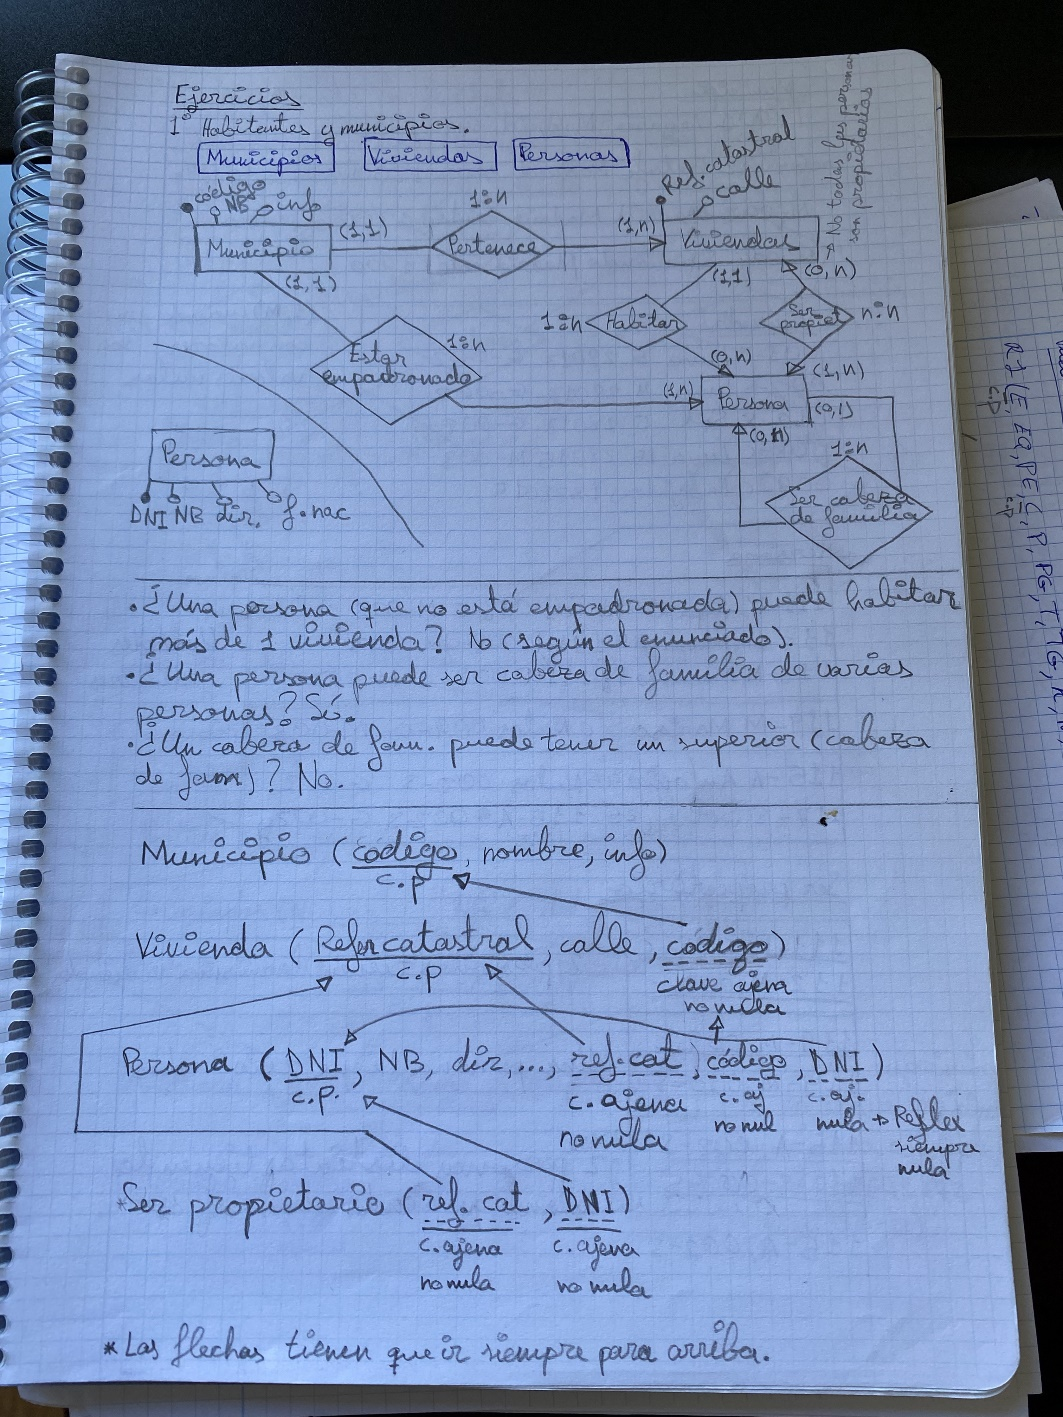 Ejercicios
1º Habitantes y municipios.
Municipios Viviendas Personas
código
NB info
Ref. catastral
calle
→ No todas las personas
son propietarios
Municipio (1,1) 1:n Pertenece (1,n) Viviendas
(1,1) (1,1) (0,n)
1:n Habitar Ser propiet n:n
Estar empadronado 1:n
(0,n) (1,n)
(1,n) Persona (0,1)
(0,n)
1:n
Ser cabeza
de família
Persona
DNI NB dir. f.nac
• ¿Una persona (que no está empadronada) puede habitar
más de 1 vivienda? No (según el enunciado).
• ¿Una persona puede ser cabeza de família de varias
personas? Sí.
• ¿Un cabeza de fam. puede tener un superior (cabeza
de fam)? No.
Municipio (código, nombre, info)
c.p
Vivienda (Refer catastral, calle, código)
c.p clave ajena
no nula
Persona (DNI, NB, dir,..., ref.cat, código, DNI)
c.p. c. ajena c. aj c. aj.
no nula no nul nula → Reflex
siempre
nula
Ser propietario (ref. cat, DNI)
c. ajena c. ajena
no nula no nula
* Las flechas tienen que ir siempre para arriba.